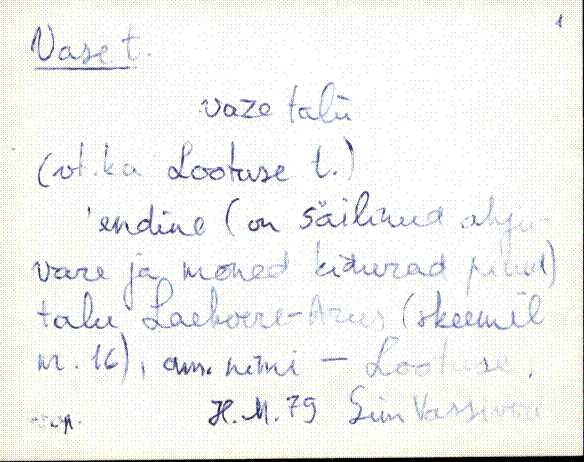 1
Vase t.
vaze talu
(vt. ka Lootuse t.)
'endine (on säilinud ahju-
vare ja mõned kidurad puud)
talu (skeemil
nr. 16), am. nimi – Lootuse.
H. M. 79 Siim